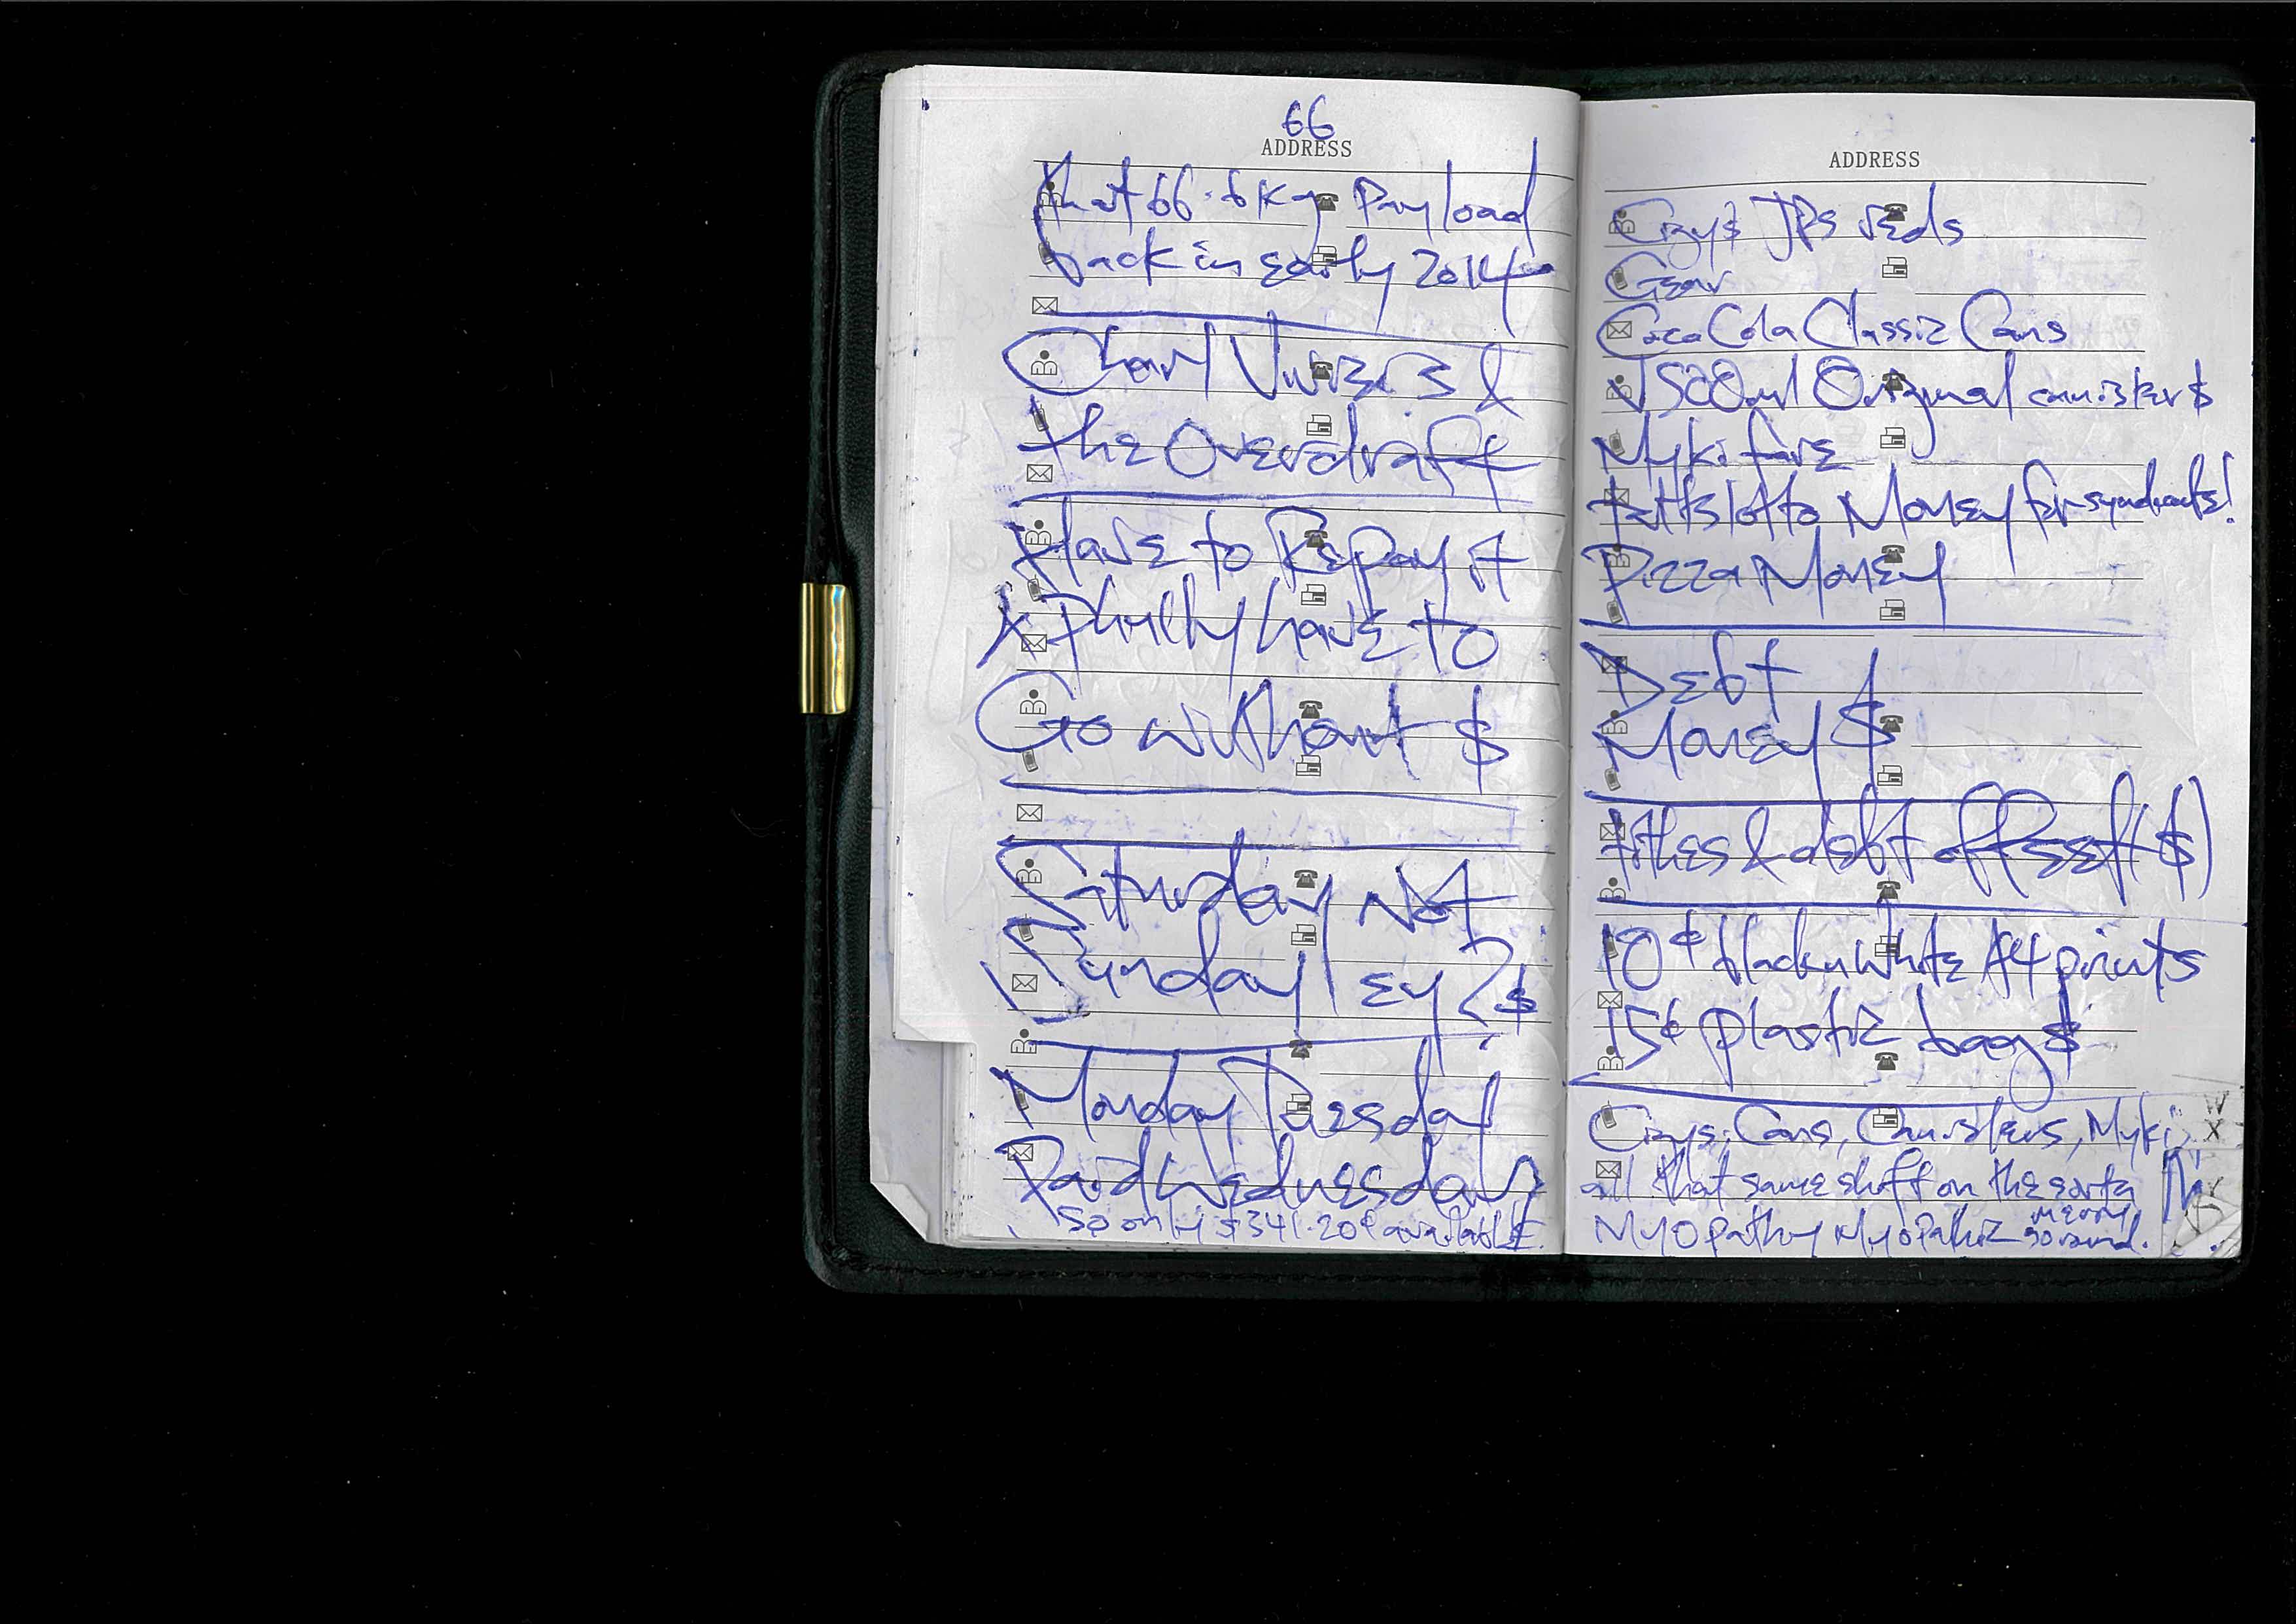 66
ADDRESS
that 66.6kg Payload
back in early 2014
Charl
the Overdraft
Have to Repay it
have to
Go without $
Saturday Not
Sunday! ey?$
Monday Tuesday!
Paid Wednesday?
so only $341.20¢ available.
ADDRESS
Cizys JPS reds
Gear
Coca Cola Classic Cans
V 500ml Original canisters
Myki fare
Tattslotto Money for syndicate!
Pizza Money
Debt
Money $
tithes & debt offsett($)
10¢ black n White A4 prints
15¢ plastic bag$
Cizys, Cans, Canisters, Myki,
all that same stuff on the
Myopathy Myopathic merry
go round.
W
X